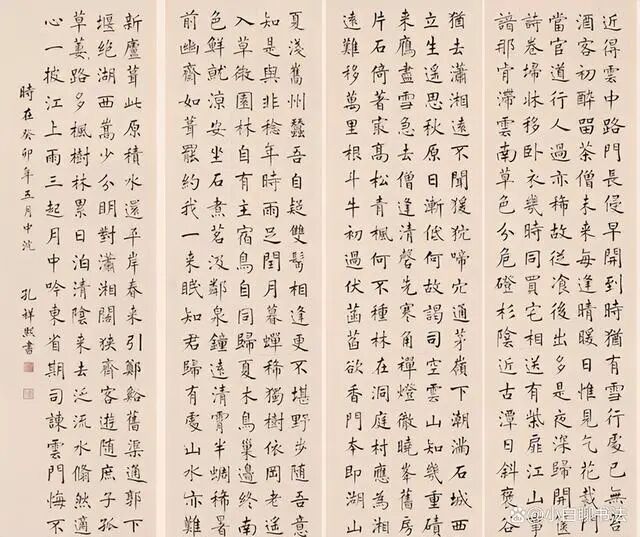 近得雲中路門長侵早開到時猶有雪行處已無苔
酒客初醉留茶僧未来每逢晴暖日惟見乞花栽門
當官道行人過亦稀故從飡後出多是夜深歸開篋
詩卷埽牀移卧衣幾時同買宅相送有柴扉江山事
諳那肯滯雲南草色分危磴杉陰近古潭日斜褒谷
猶去瀟湘遠不聞猨狖啼穴通茅嶺下潮満石城西
立生遥思秋原日漸低何故謁司空雲山知幾重磧
来鴈盡雪急去僧逢清磬先寒角禪燈徹曉峯舊房
片石倚著家高松青楓何不種林在洞庭村應為湘
遠難移萬里根斗牛初過伏菡萏欲香門本即湖山
夏淺舊州蠶吾自疑雙鬢相逢更不堪野步随吾意
知是與非稔年時雨足閏月暮蟬稀獨樹依岡老遥
入草微園林自有主宿鳥自同歸夏木鳥巢邊終南
色鮮就凉安坐石煮茗汲鄰泉鐘遠清霄半蜩稀暑
前幽齋如葺罷約我一来眠知君歸有處山水亦難
新廬葺此原積水還平岸春来引鄭谿舊渠通郭下
堰絶湖西嵩少分明對瀟湘闊狹齊客遊随庶子孤
草萋路多楓樹林累日泊清陰来去泛流水翛然適
心一披江上雨三起月中吟東省期司諫雲門悔不
時在癸卯年五月中沇
孔祥熙書
@小白聊书法